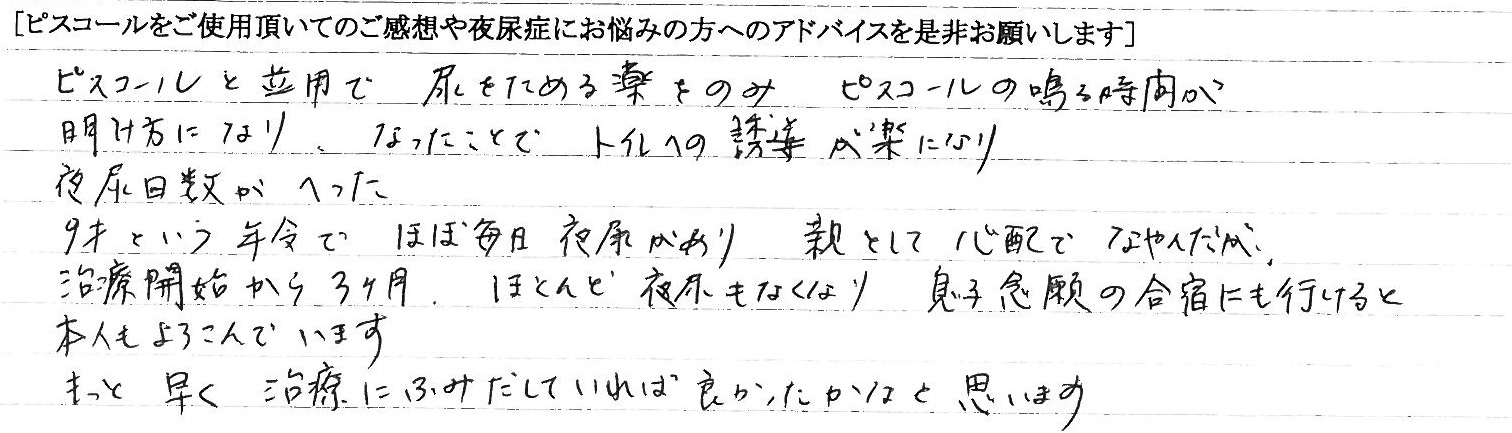 [ピスコールをご使用頂いてのご感想や夜尿症にお悩みの方へのアドバイスを是非お願いします]
ピスコールと並用で 尿をためる薬をのみ ピスコールの鳴る時間が
明け方になり、なったことで トイレへの誘導が楽になり
夜尿日数が へった
9才という年令で ほぼ毎日 夜尿があり 親として心配で なやんだが、
治療開始から3ヶ月. ほとんど 夜尿もなくなり 息子念願の合宿にも行けると
本人もよろこんでいます
もっと 早く 治療にふみだしていれば良かったかなと思います